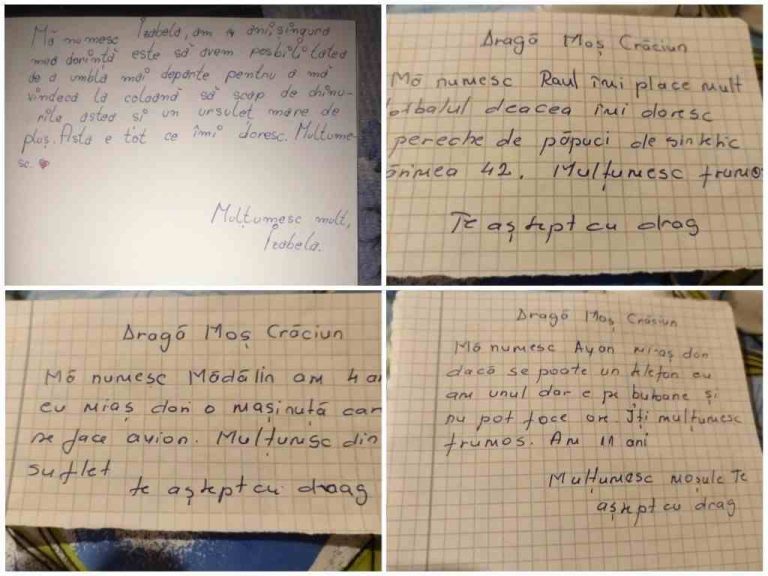 Mă numesc Izabela, am 14 ani, singura
mea dorință este să avem posbilitatea
de a umbla mai departe pentru a mă
vindeca la coloană să scap de chinu-
rile astea și un ursuleț mare de
pluș. Asta e tot ce îmi doresc. Mulțume-
sc.
Mulțumesc mult,
Izabela.
Dragă Moș Crăciun
Mă numesc Raul îmi place mult
otbalul deacea îmi doresc
pereche de păpuci de sintetic
ărimea 42. Mulțumesc frumo
Te aștept cu drag
Dragă Moș Crăciun
Mă numesc Mădălin am 4 an
eu miaș dori o mașinuță car
se face avion. Mulțumesc din
suflet
te aștept cu draag
Dragă Moș Crăciun
Mă numesc Ayan miaș dori
dacă se poate un telefon eu
am unul dar e pe butoane și
nu pot face ore. Iți mulțumesc
frumos. Am 11 ani
Multumesc moșule Te
aștept cu drag